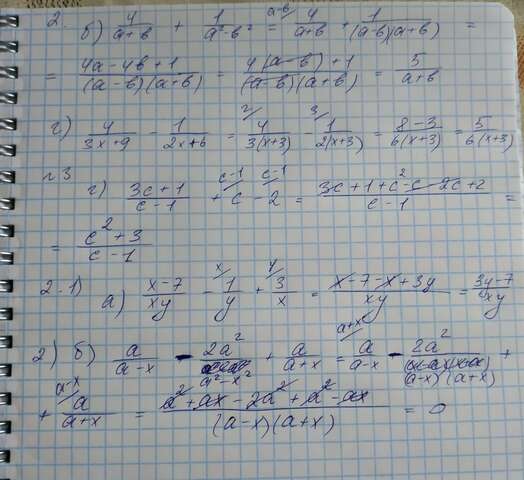 2. б) 4/(a+b) + 1/(a²-b²) = 4/(a+b) (a-b/ + 1/((a-b)(a+b)) =
= (4a-4b+1)/((a-b)(a+b)) = (4(a-b)+1)/((a-b)(a+b)) = 5/(a+b)
г) 4/(3x+9) - 1/(2x+6) = 4/(3(x+3)) (2/ - 1/(2(x+3)) (3/ = (8-3)/(6(x+3)) = 5/(6(x+3))
№3
г) (3c+1)/(c-1) + c (c-1/ - 2 (c-1/ = (3c+1+c²-c-2c+2)/(c-1) =
= (c²+3)/(c-1)
2.1) а) (x-7)/(xy) - 1/y (x/ + 3/x (y/ = (x-7-x+3y)/(xy) = (3y-7)/(xy)
2) б) a/(a-x) - 2a²/(a²-x²) + a/(a+x) = a/(a-x) (a+x/ - 2a²/((a-x)(a+x)) +
+ a/(a+x) (a-x/ = (a²+ax-2a²+a²-ax)/((a-x)(a+x)) = 0